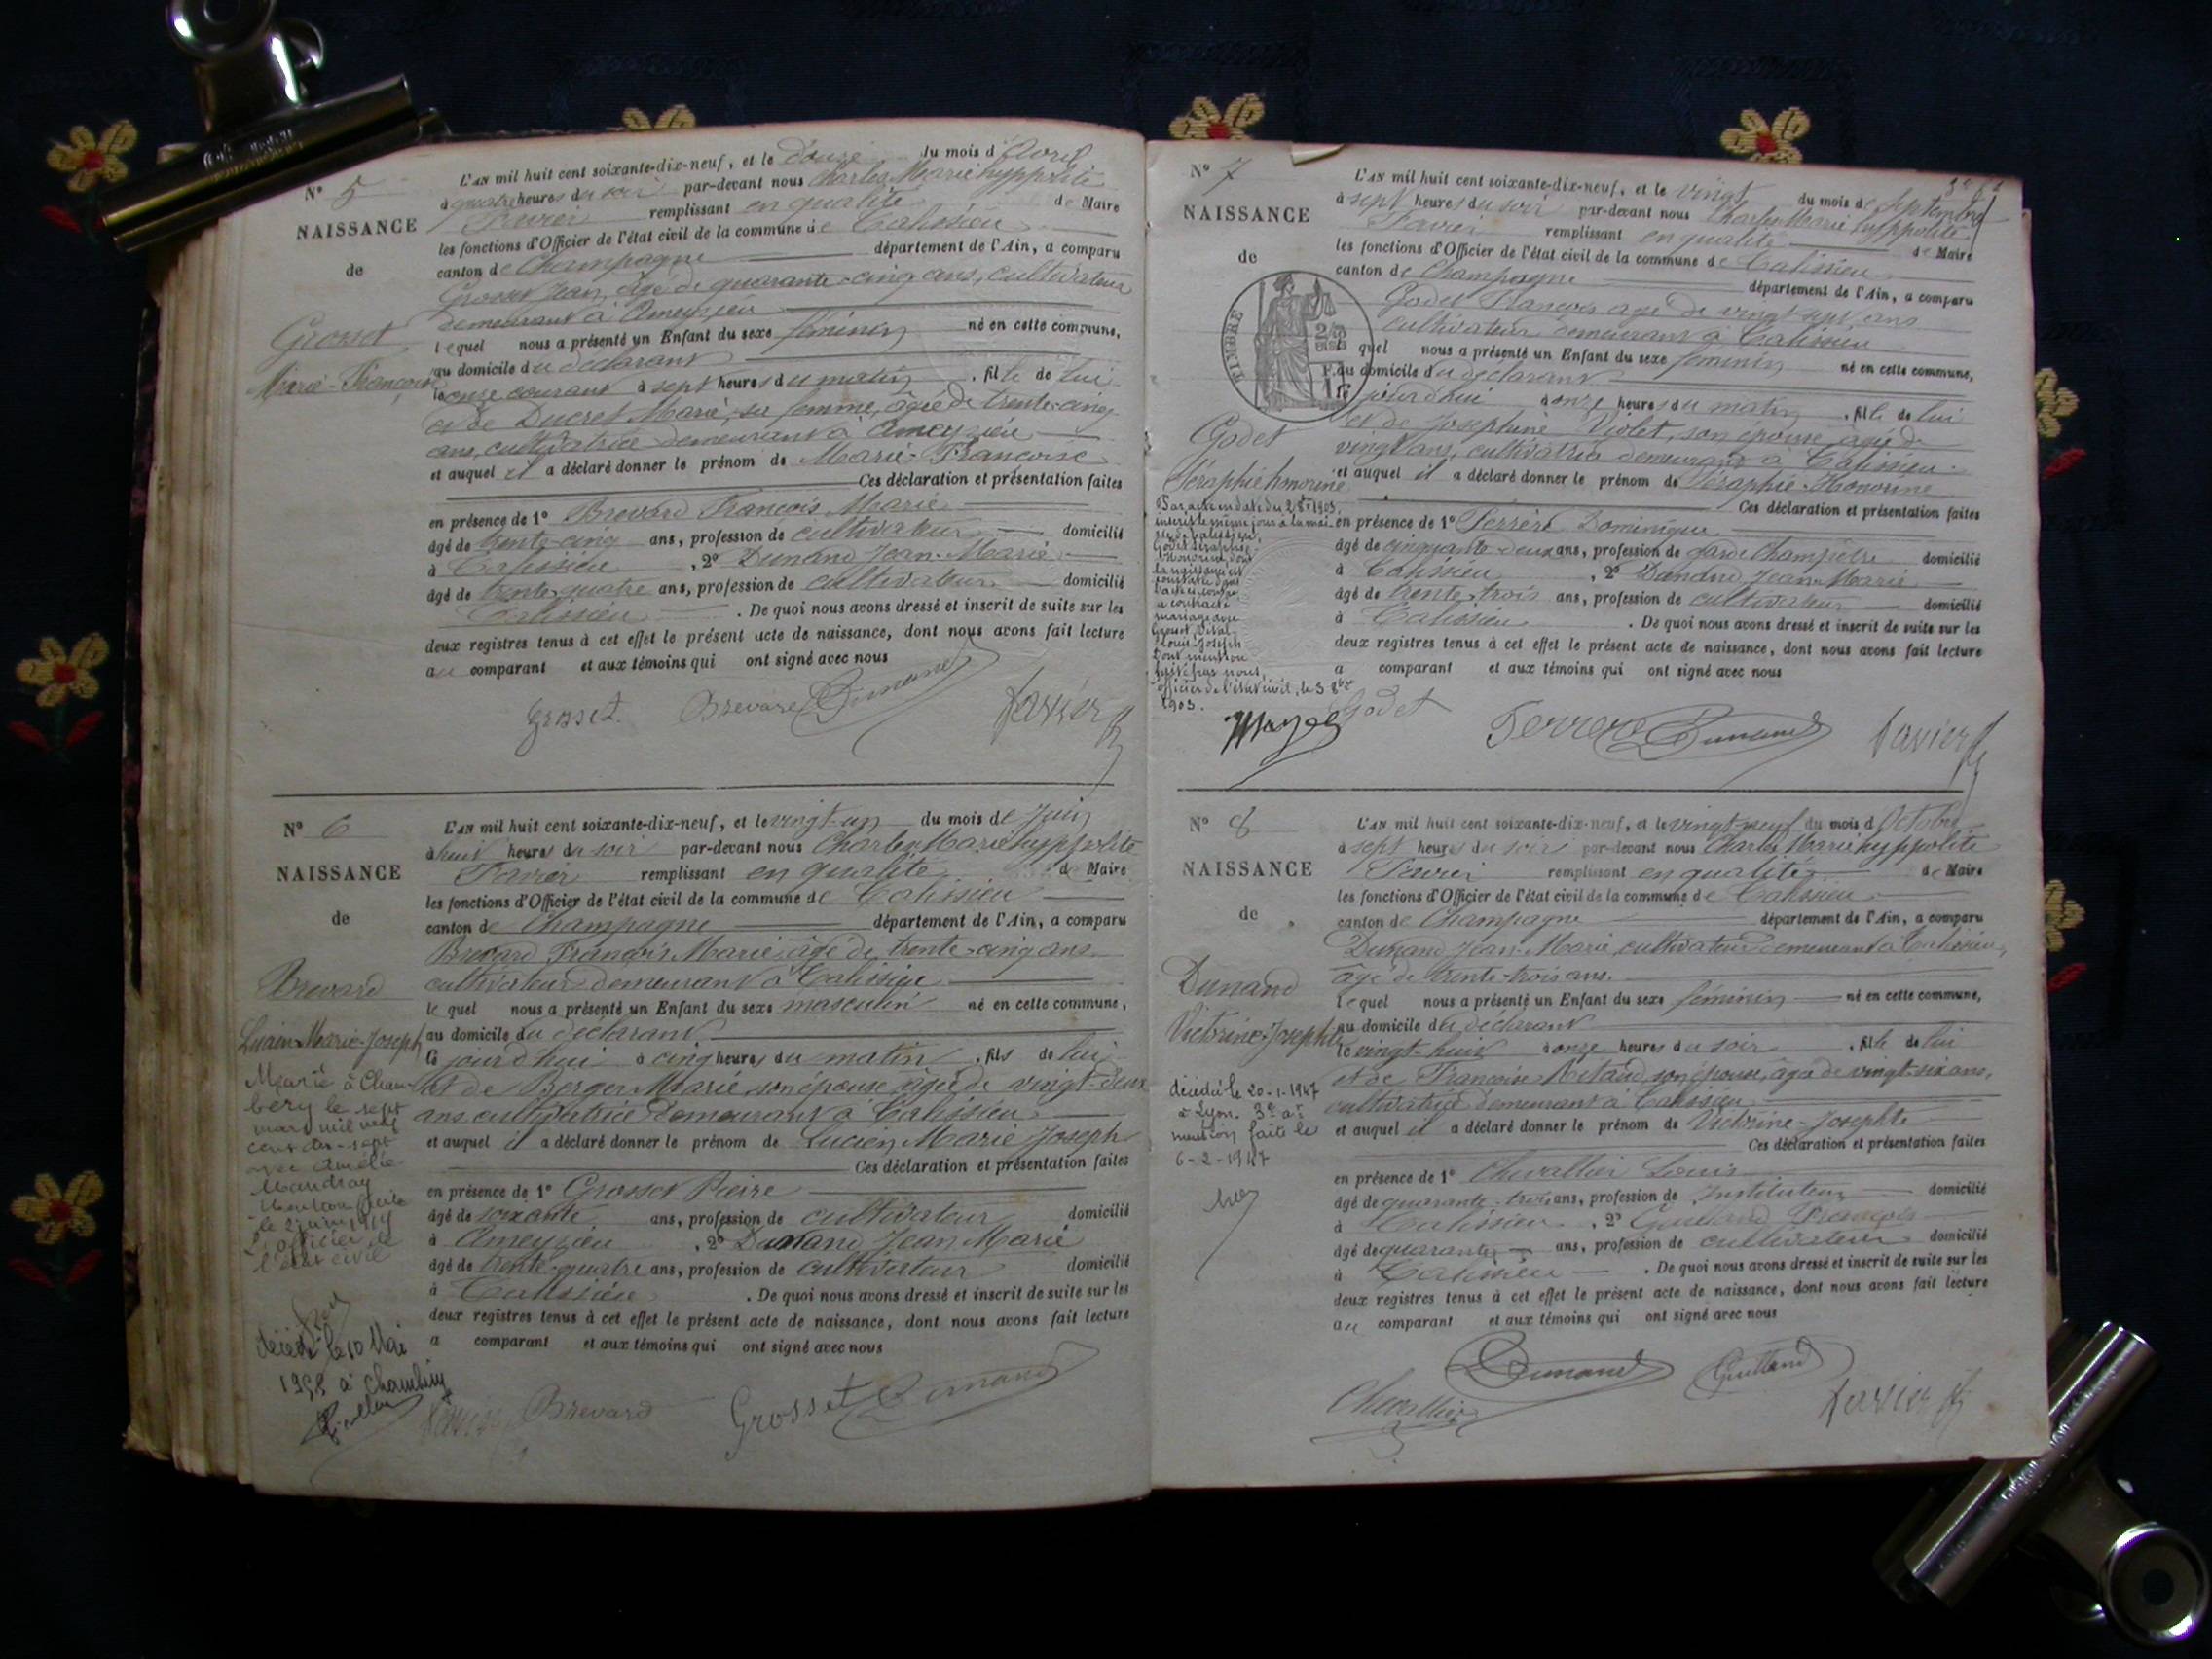 N° 5
NAISSANCE
de
Grosset
Marie-Françoise
L'AN mil huit cent soixante-dix-neuf, et le douze du mois d'Avril
à quatre heures du soir par-devant nous Charles Marie hyppolite
Favier remplissant en qualité de Maire
les fonctions d'Officier de l'état civil de la commune de Talissieu
canton de Champagne département de l'Ain, a comparu
Grosset Jean, âgé de quarante-cinq ans, cultivateur
demeurant à Ameyzieu
lequel nous a présenté un Enfant du sexe féminin né en cette commune,
au domicile du déclarant
le onze courant à sept heures du matin, fille de lui
et de Ducret Marie, sa femme, âgée de trente-cinq
ans, cultivatrice demeurant à Ameyzieu
et auquel il a déclaré donner le prénom de Marie-Françoise
Ces déclaration et présentation faites
en présence de 1° Brevard François Marie
âgé de trente-cinq ans, profession de cultivateur domicilié
à Talissieu, 2° Dunand Jean-Marie
âgé de trente-quatre ans, profession de cultivateur domicilié
Talissieu. De quoi nous avons dressé et inscrit de suite sur les
deux registres tenus à cet effet le présent acte de naissance, dont nous avons fait lecture
au comparant et aux témoins qui ont signé avec nous
Grosset Brevard Dunand Favier
N° 6
NAISSANCE
de
Brevard
Lucien-Marie-Joseph
Marié à Cham-
béry le sept
mars mil neuf
cent dix-sept
avec Amélie
Mandray
Mention faite
le 2 juin 1917
L'officier de
l'état civil
décédé le 10 Mai
1958 à Chambéry
L'AN mil huit cent soixante-dix-neuf, et le vingt-un du mois de Juin
à huit heures du soir par-devant nous Charles Marie hyppolite
Favier remplissant en qualité de Maire
les fonctions d'Officier de l'état civil de la commune de Talissieu
canton de Champagne département de l'Ain, a comparu
Brevard François Marie, âgé de trente-cinq ans
cultivateur demeurant à Talissieu
lequel nous a présenté un Enfant du sexe masculin né en cette commune,
au domicile du déclarant
Ce jourd'hui à cinq heures du matin, fils de lui
et de Berger Marie, son épouse, âgée de vingt-deux
ans cultivatrice demeurant à Talissieu
et auquel il a déclaré donner le prénom de Lucien Marie Joseph
Ces déclaration et présentation faites
en présence de 1° Grosset Pierre
âgé de soixante ans, profession de cultivateur domicilié
à Ameyzieu, 2° Dunand Jean Marie
âgé de trente-quatre ans, profession de cultivateur domicilié
à Talissieu. De quoi nous avons dressé et inscrit de suite sur les
deux registres tenus à cet effet le présent acte de naissance, dont nous avons fait lecture
a comparant et aux témoins qui ont signé avec nous
Favier Brevard Grosset Dunand
N° 7
NAISSANCE
de
TIMBRE
Godet
Séraphie honorine
Par acte en date du 2 8bre 1903,
inscrit le même jour à la mai-
rie de Talissieu,
Godet Séraphie
honorine, dont
la naissance est
constatée dans
l'acte ci-contre
a contracté
mariage avec
Louis Joseph
Dont mention
faite par nous,
officier de l'état civil, le 3 8bre
1903.
L'AN mil huit cent soixante-dix-neuf, et le vingt du mois de Septembre
à sept heures du soir par-devant nous Charles Marie hyppolite
Favier remplissant en qualité de Maire
les fonctions d'Officier de l'état civil de la commune de Talissieu
canton de Champagne département de l'Ain, a comparu
Godet François âgé de vingt-sept ans
cultivateur demeurant à Talissieu
lequel nous a présenté un Enfant du sexe féminin né en cette commune,
au domicile du déclarant
Ce jourd'hui à onze heures du matin, fille de lui
et de Josephine Violet, son épouse, âgée de
vingt ans, cultivatrice demeurant à Talissieu
et auquel il a déclaré donner le prénom de Séraphie-Honorine
Ces déclaration et présentation faites
en présence de 1° Ferrère Dominique
âgé de cinquante-deux ans, profession de garde champêtre domicilié
à Talissieu, 2° Dunand Jean-Marie
âgé de trente-trois ans, profession de cultivateur domicilié
à Talissieu. De quoi nous avons dressé et inscrit de suite sur les
deux registres tenus à cet effet le présent acte de naissance, dont nous avons fait lecture
a comparant et aux témoins qui ont signé avec nous
Godet Ferrere Dunand Favier
N° 8
NAISSANCE
de
Dunand
Victorine-Josephte
décédée le 20-1-1947
à Lyon. 3e ar
mention faite le
6-2-1947
L'AN mil huit cent soixante-dix-neuf, et le vingt-neuf du mois d'Octobre
à sept heures du soir par-devant nous Charles Marie hyppolite
Favier remplissant en qualité de Maire
les fonctions d'Officier de l'état civil de la commune de Talissieu
canton de Champagne département de l'Ain, a comparu
Dunand Jean-Marie, cultivateur demeurant à Talissieu,
âgé de trente-trois ans.
lequel nous a présenté un Enfant du sexe féminin né en cette commune,
au domicile du déclarant
le vingt-huit à onze heures du soir, fille de lui
et de Françoise Nitaud, son épouse, âgée de vingt-six ans,
cultivatrice demeurant à Talissieu
et auquel il a déclaré donner le prénom de Victorine-Josephte
Ces déclaration et présentation faites
en présence de 1° Chevallier Louis
âgé de quarante-trois ans, profession de Instituteur domicilié
à Talissieu, 2° Guilland François
âgé de quarante ans, profession de cultivateur domicilié
à Talissieu. De quoi nous avons dressé et inscrit de suite sur les
deux registres tenus à cet effet le présent acte de naissance, dont nous avons fait lecture
au comparant et aux témoins qui ont signé avec nous
Dunand Guilland
Chevallier Favier